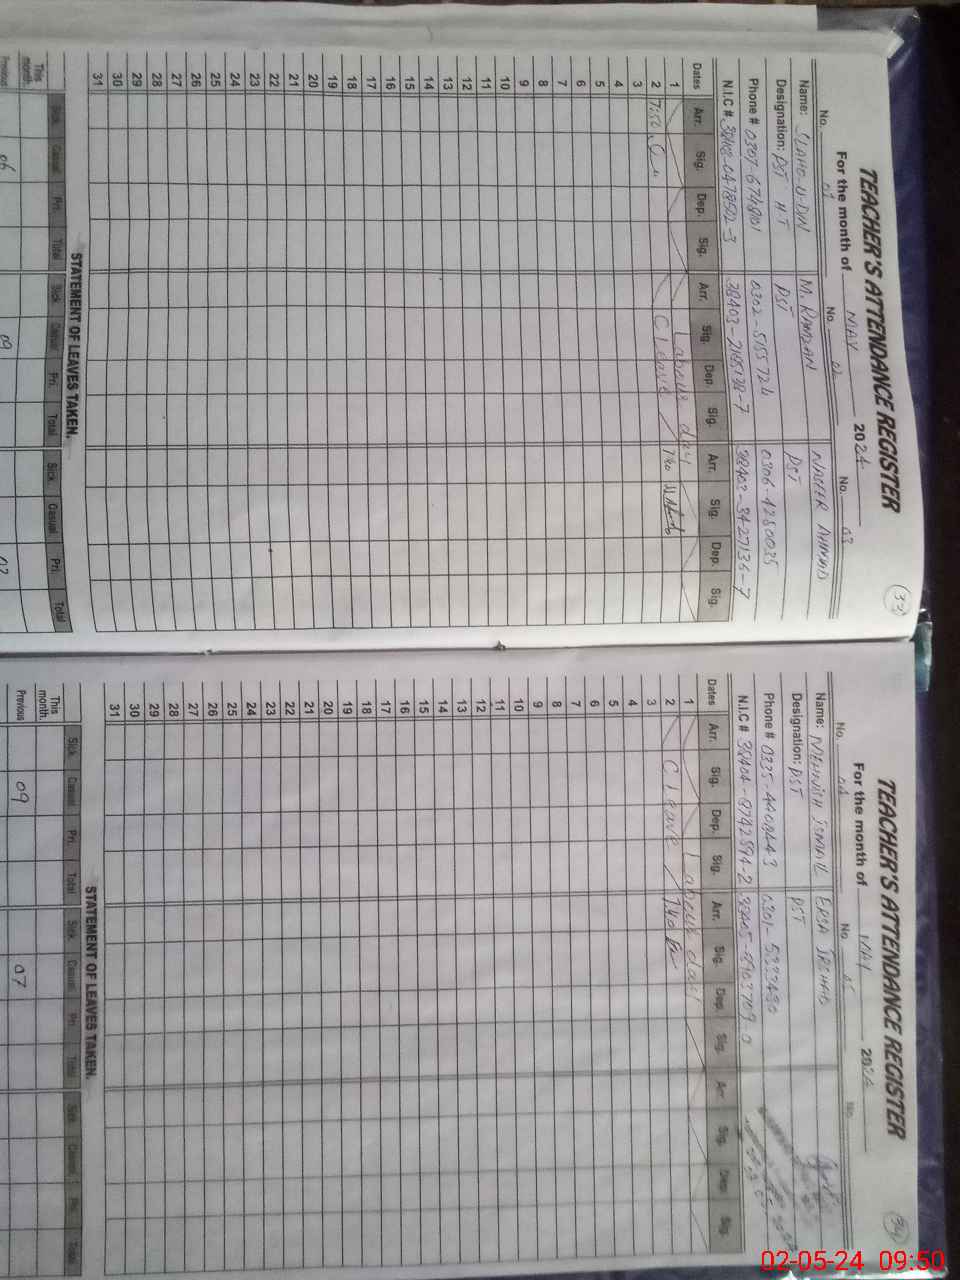 33
TEACHER'S ATTENDANCE REGISTER
For the month of MAY 2024
No. 01 No. 02 No. 03
Name: M. RAMZAN NASEER AHMAD
Designation: PST HT PST PST
Phone # 0307-6748101 0306-4280035
N.I.C #
Dates Arr. Sig. Dep. Sig. Arr. Sig. Dep. Sig. Arr. Sig. Dep. Sig.
1 Labour day
2 7:50 C leave 7:40
3
4
5
6
7
8
9
10
11
12
13
14
15
16
17
18
19
20
21
22
23
24
25
26
27
28
29
30
31
STATEMENT OF LEAVES TAKEN.
Sick. Casual Pri. Total Sick. Casual Pri. Total Sick. Casual Pri. Total
This month.
Previous 06 09 07
34
TEACHER'S ATTENDANCE REGISTER
For the month of MAY 2024
No. 04 No. 05 No.
Name: MEHWISH ISMAIL ERSA IRSHAD
Designation: PST PST
Phone #
N.I.C #
Dates Arr. Sig. Dep. Sig. Arr. Sig. Dep. Sig. Arr. Sig. Dep. Sig.
1 Labour day
2 C leave 7:40
3
4
5
6
7
8
9
10
11
12
13
14
15
16
17
18
19
20
21
22
23
24
25
26
27
28
29
30
31
STATEMENT OF LEAVES TAKEN.
Sick. Casual Pri. Total Sick. Casual Pri. Total Sick. Casual Pri. Total
This month.
Previous 09 07
02-05-24 09:50